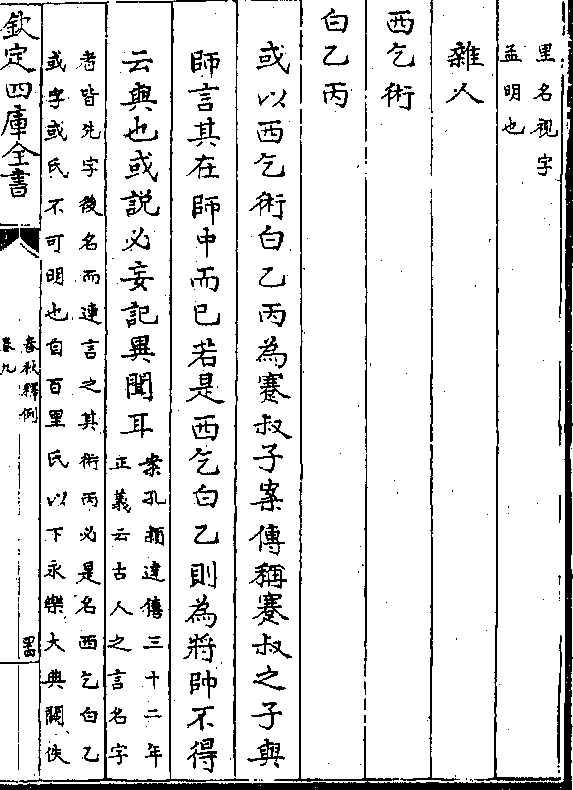 里名視字
孟明也
雜人
西乞術
白乙丙
或以西乞術白乙丙為蹇叔子案傳稱蹇叔之子與
師言其在師中而已若是西乞白乙則為將帥不得
云與也或説必妄記異聞耳
案孔穎達僖三十二年
正義云古人之言名字
者皆先字後名而連言之其術丙必是名西乞白乙
或字或氏不可明也自百里氏以下永樂大典闕佚
欽定四庫全書
春秋釋例
卷九